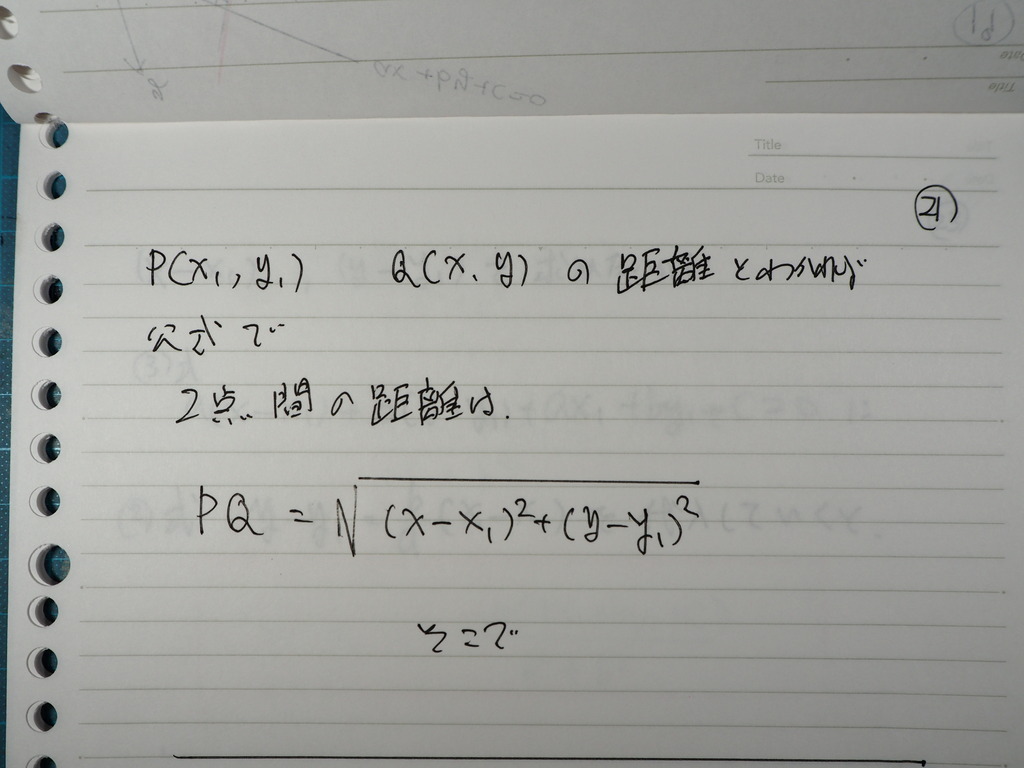 Title
Date
㉑
P(x₁, y₁) Q(x, y) の 距離 とわかれば
公式で
2点間の距離は.
PQ = √((x-x₁)²+(y-y₁)²)
そこで